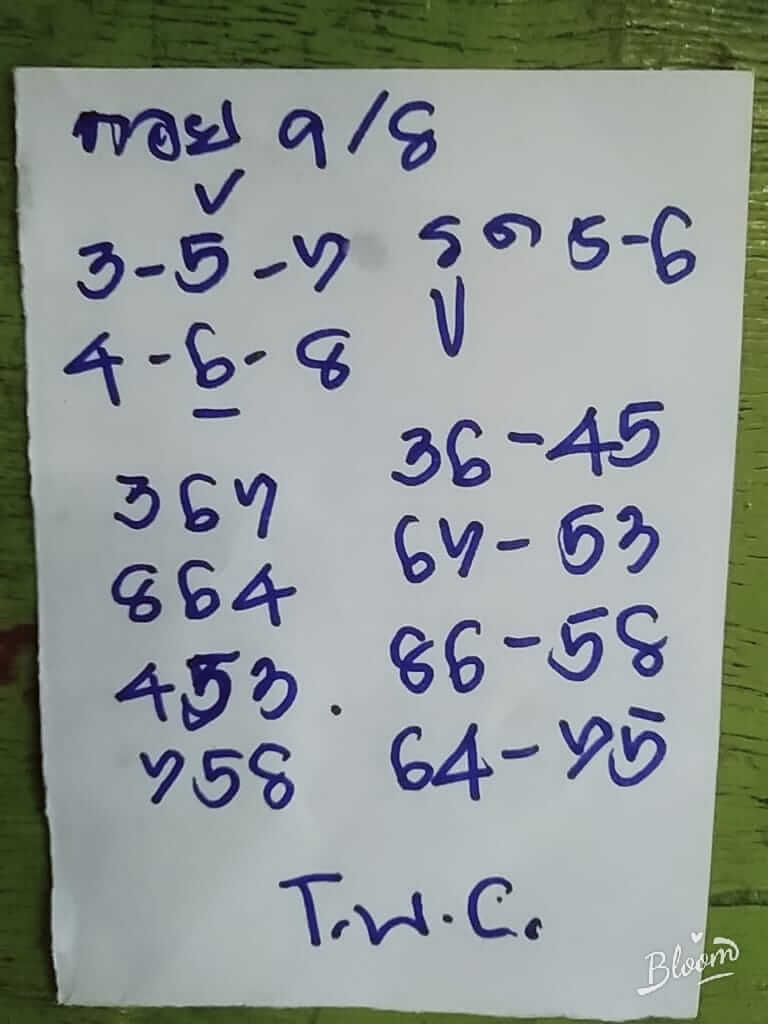 ฮานอย 9/8
3-5-7 รูด 5-6
4-6-8
367
864
453
758
36-45
67-53
86-58
64-75
T.W.C.
Bloom